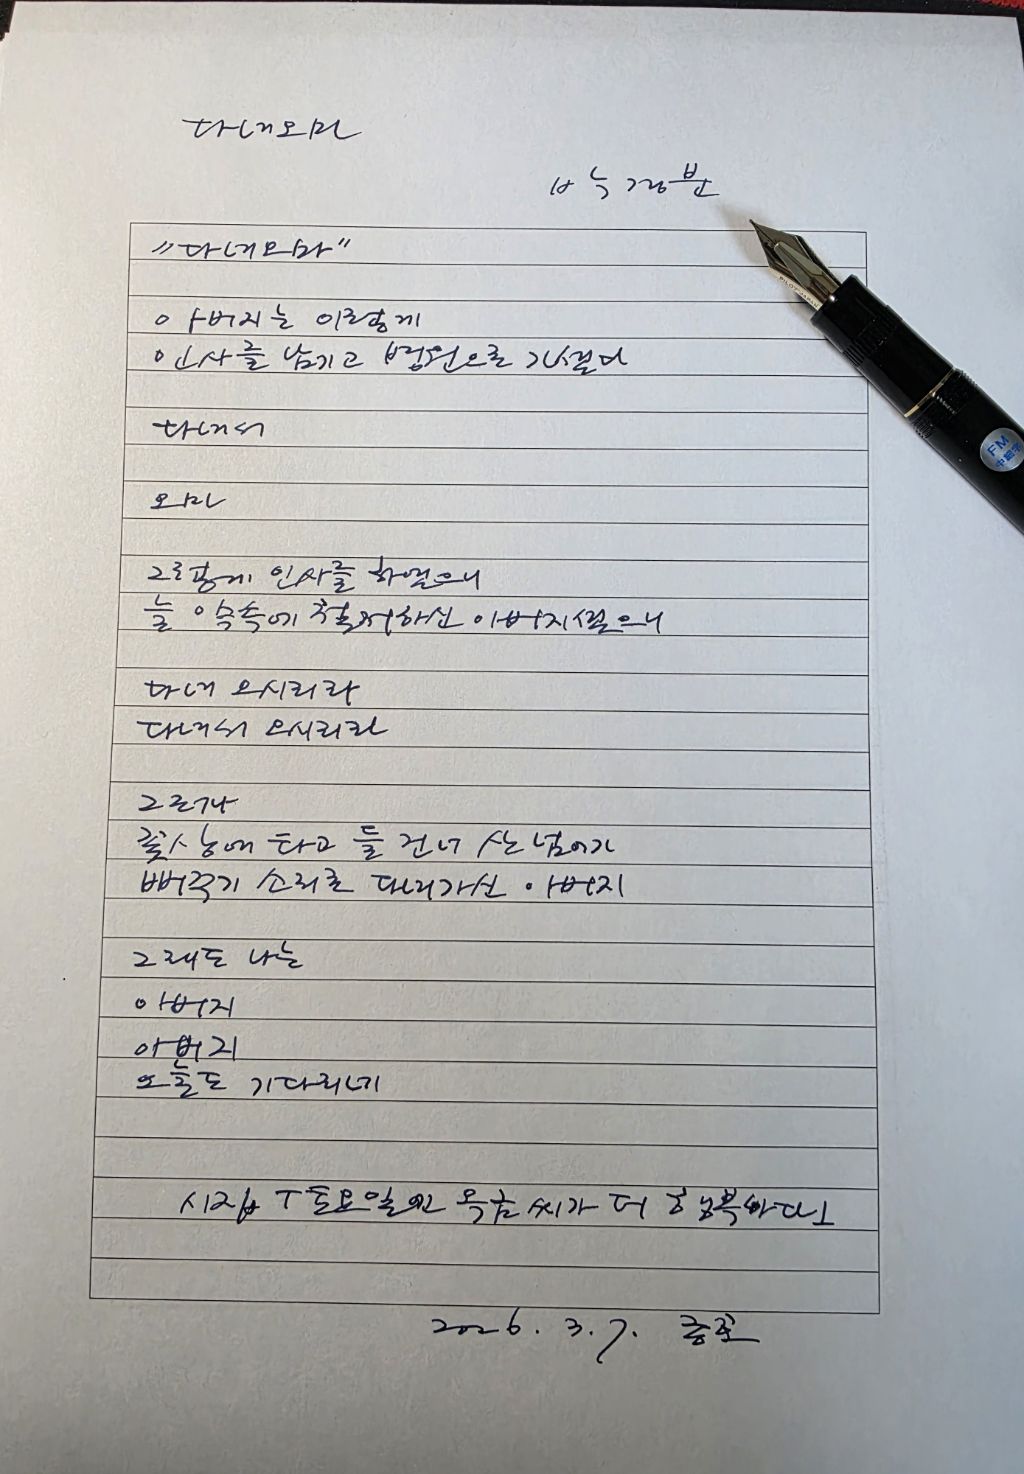 다녀오마
박경분
"다녀오마"
아버지는 이렇게
인사를 남기고 병원으로 가셨다
다녀서
오마
그렇게 인사를 하였으니
늘 약속에 철저하신 아버지셨으니
다녀 오시리라
다녀서 오시리라
그러나
꽃상여 타고 들 건너 산 넘어가
뻐꾹기 소리로 다녀가신 아버지
그래도 나는
아버지
아버지
오늘도 기다리네
시집 「토요일엔 옥금 씨가 더 행복하다」
2026. 3. 7.
PILOT JAPAN
FM
中細字